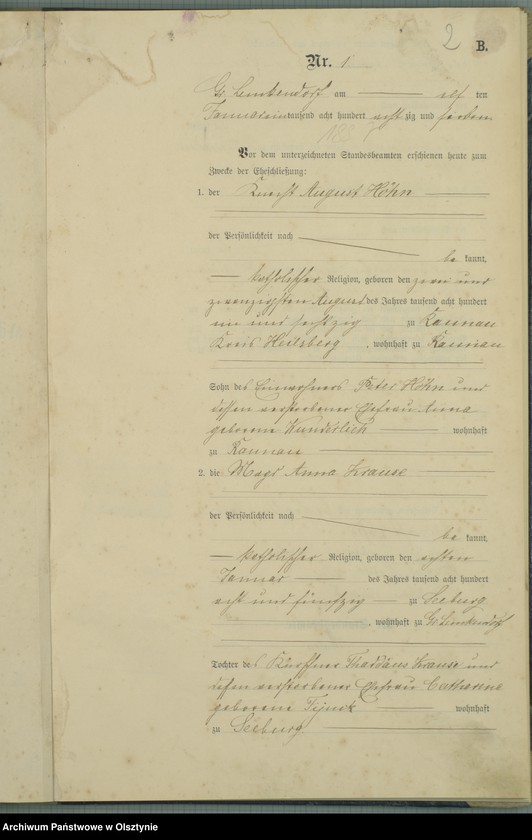 2 B.
Nr. 1
Gr. Lemkendorf am elf ten
Januar eintausend acht hundert acht zig und sieben
Vor dem unterzeichneten Standesbeamten erschienen heute zum
Zwecke der Eheschließung:
1. der Knecht August Höhn
der Persönlichkeit nach
be kannt,
katholischer Religion, geboren den zwei und
zwanzigsten August des Jahres tausend acht hundert
ein und sechszig zu Raunau
Kreis Heilsberg, wohnhaft zu Raunau
Sohn des Einwohners Peter Höhn und
dessen verstorbener Ehefrau Anna
geborene Wunderlich wohnhaft
zu Raunau
2. die Magd Anna Krause
der Persönlichkeit nach
be kannt,
katholischer Religion, geboren den achten
Januar des Jahres tausend acht hundert
acht und fünfzig zu Seeburg
, wohnhaft zu Gr. Lemkendorf
Tochter des Thaddäus Krause und
dessen verstorbener Ehefrau Catharina
geborene wohnhaft
zu Seeburg
Archiwum Państwowe w Olsztynie